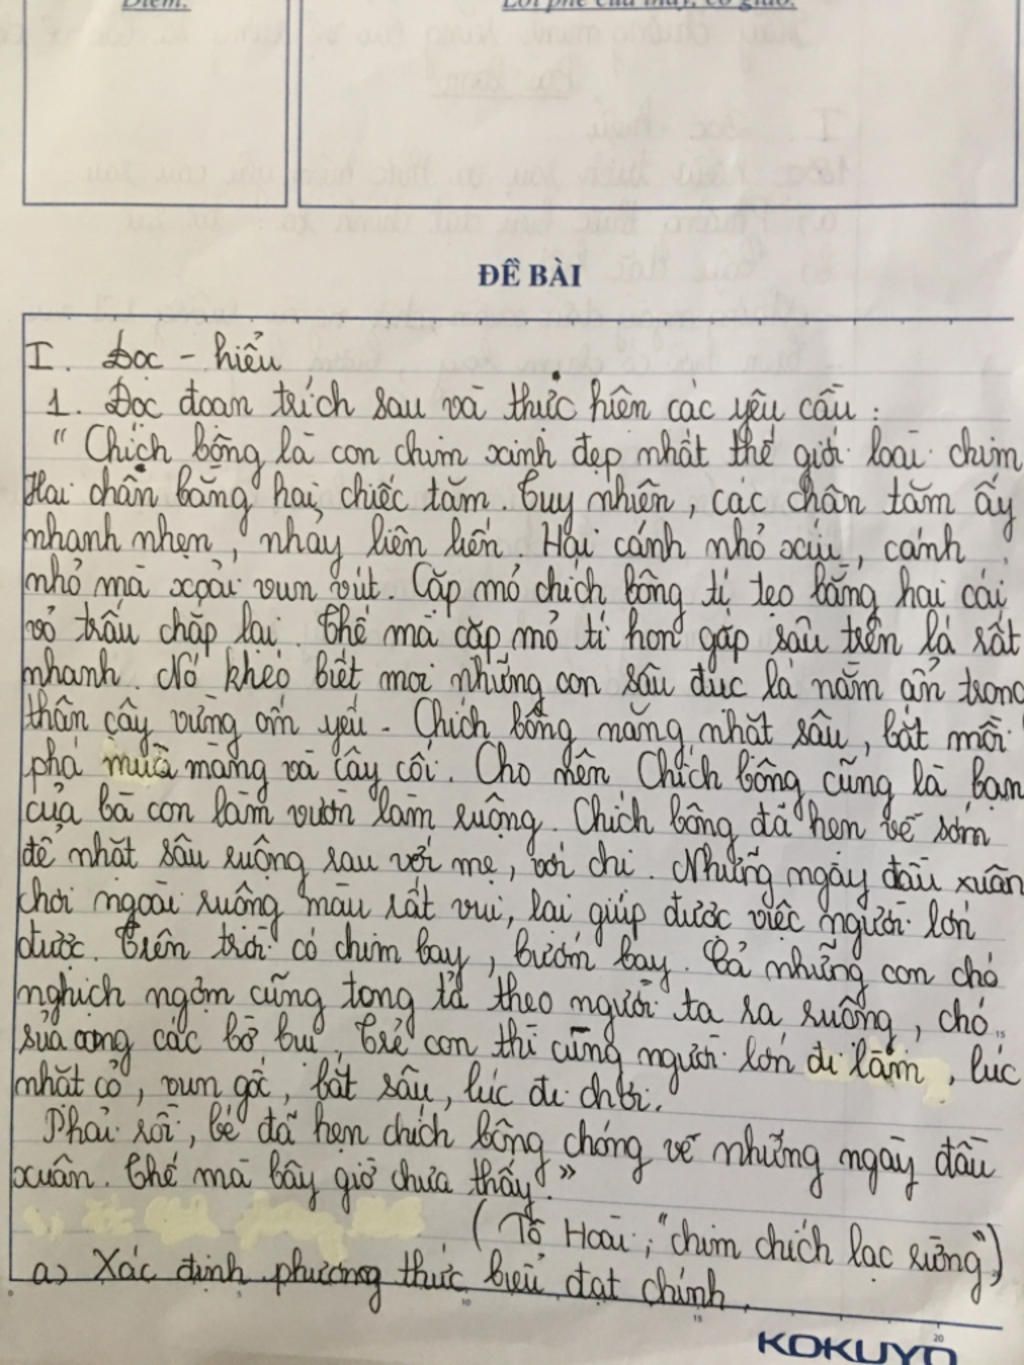 Điểm:
Lời phê của thầy, cô giáo:
ĐỀ BÀI
I. Đọc - hiểu
1. Đọc đoạn trích sau và thực hiện các yêu cầu :
" Chích bông là con chim xinh đẹp nhất thế giới loài chim
Hai chân bằng hai chiếc tăm. Tuy nhiên, các chân tăm ấy
nhanh nhẹn, nhảy liên liến. Hai cánh nhỏ xíu, cánh
nhỏ mà xoải vun vút. Cặp mỏ chích bông tí tẹo bằng hai cái
vỏ trấu chắp lại. Thế mà cặp mỏ tí hon gắp sâu trên lá rất
nhanh. Nó khéo biết moi những con sâu đục là nằm ẩn trong
thân cây vừng ốm yếu. Chích bông năng nhặt sâu, bắt mồi
phá mùa màng và cây cối. Cho nên Chích bông cũng là bạn
của bà con làm vườn làm ruộng. Chích bông đã hẹn về sớm
để nhặt sâu ruộng rau với mẹ, với chị. Những ngày đầu xuân
chơi ngoài ruộng màu rất vui, lại giúp được việc người lớn
được. Trên trời có chim bay, bướm bay. Cả những con chó
nghịch ngợm cũng tong tả theo người ta ra ruộng, chó
sủa cong các bờ bụi. Trẻ con thì cũng người lớn đi làm, lúc
nhặt cỏ, vun gốc, bắt sâu, lúc đi chơi.
Phải rồi, bé đã hẹn chích bông chóng về những ngày đầu
xuân. Thế mà bây giờ chưa thấy."
( Tô Hoài, "chim chích lạc rừng")
a) Xác định phương thức biểu đạt chính.
10
15
20
KOKUYO